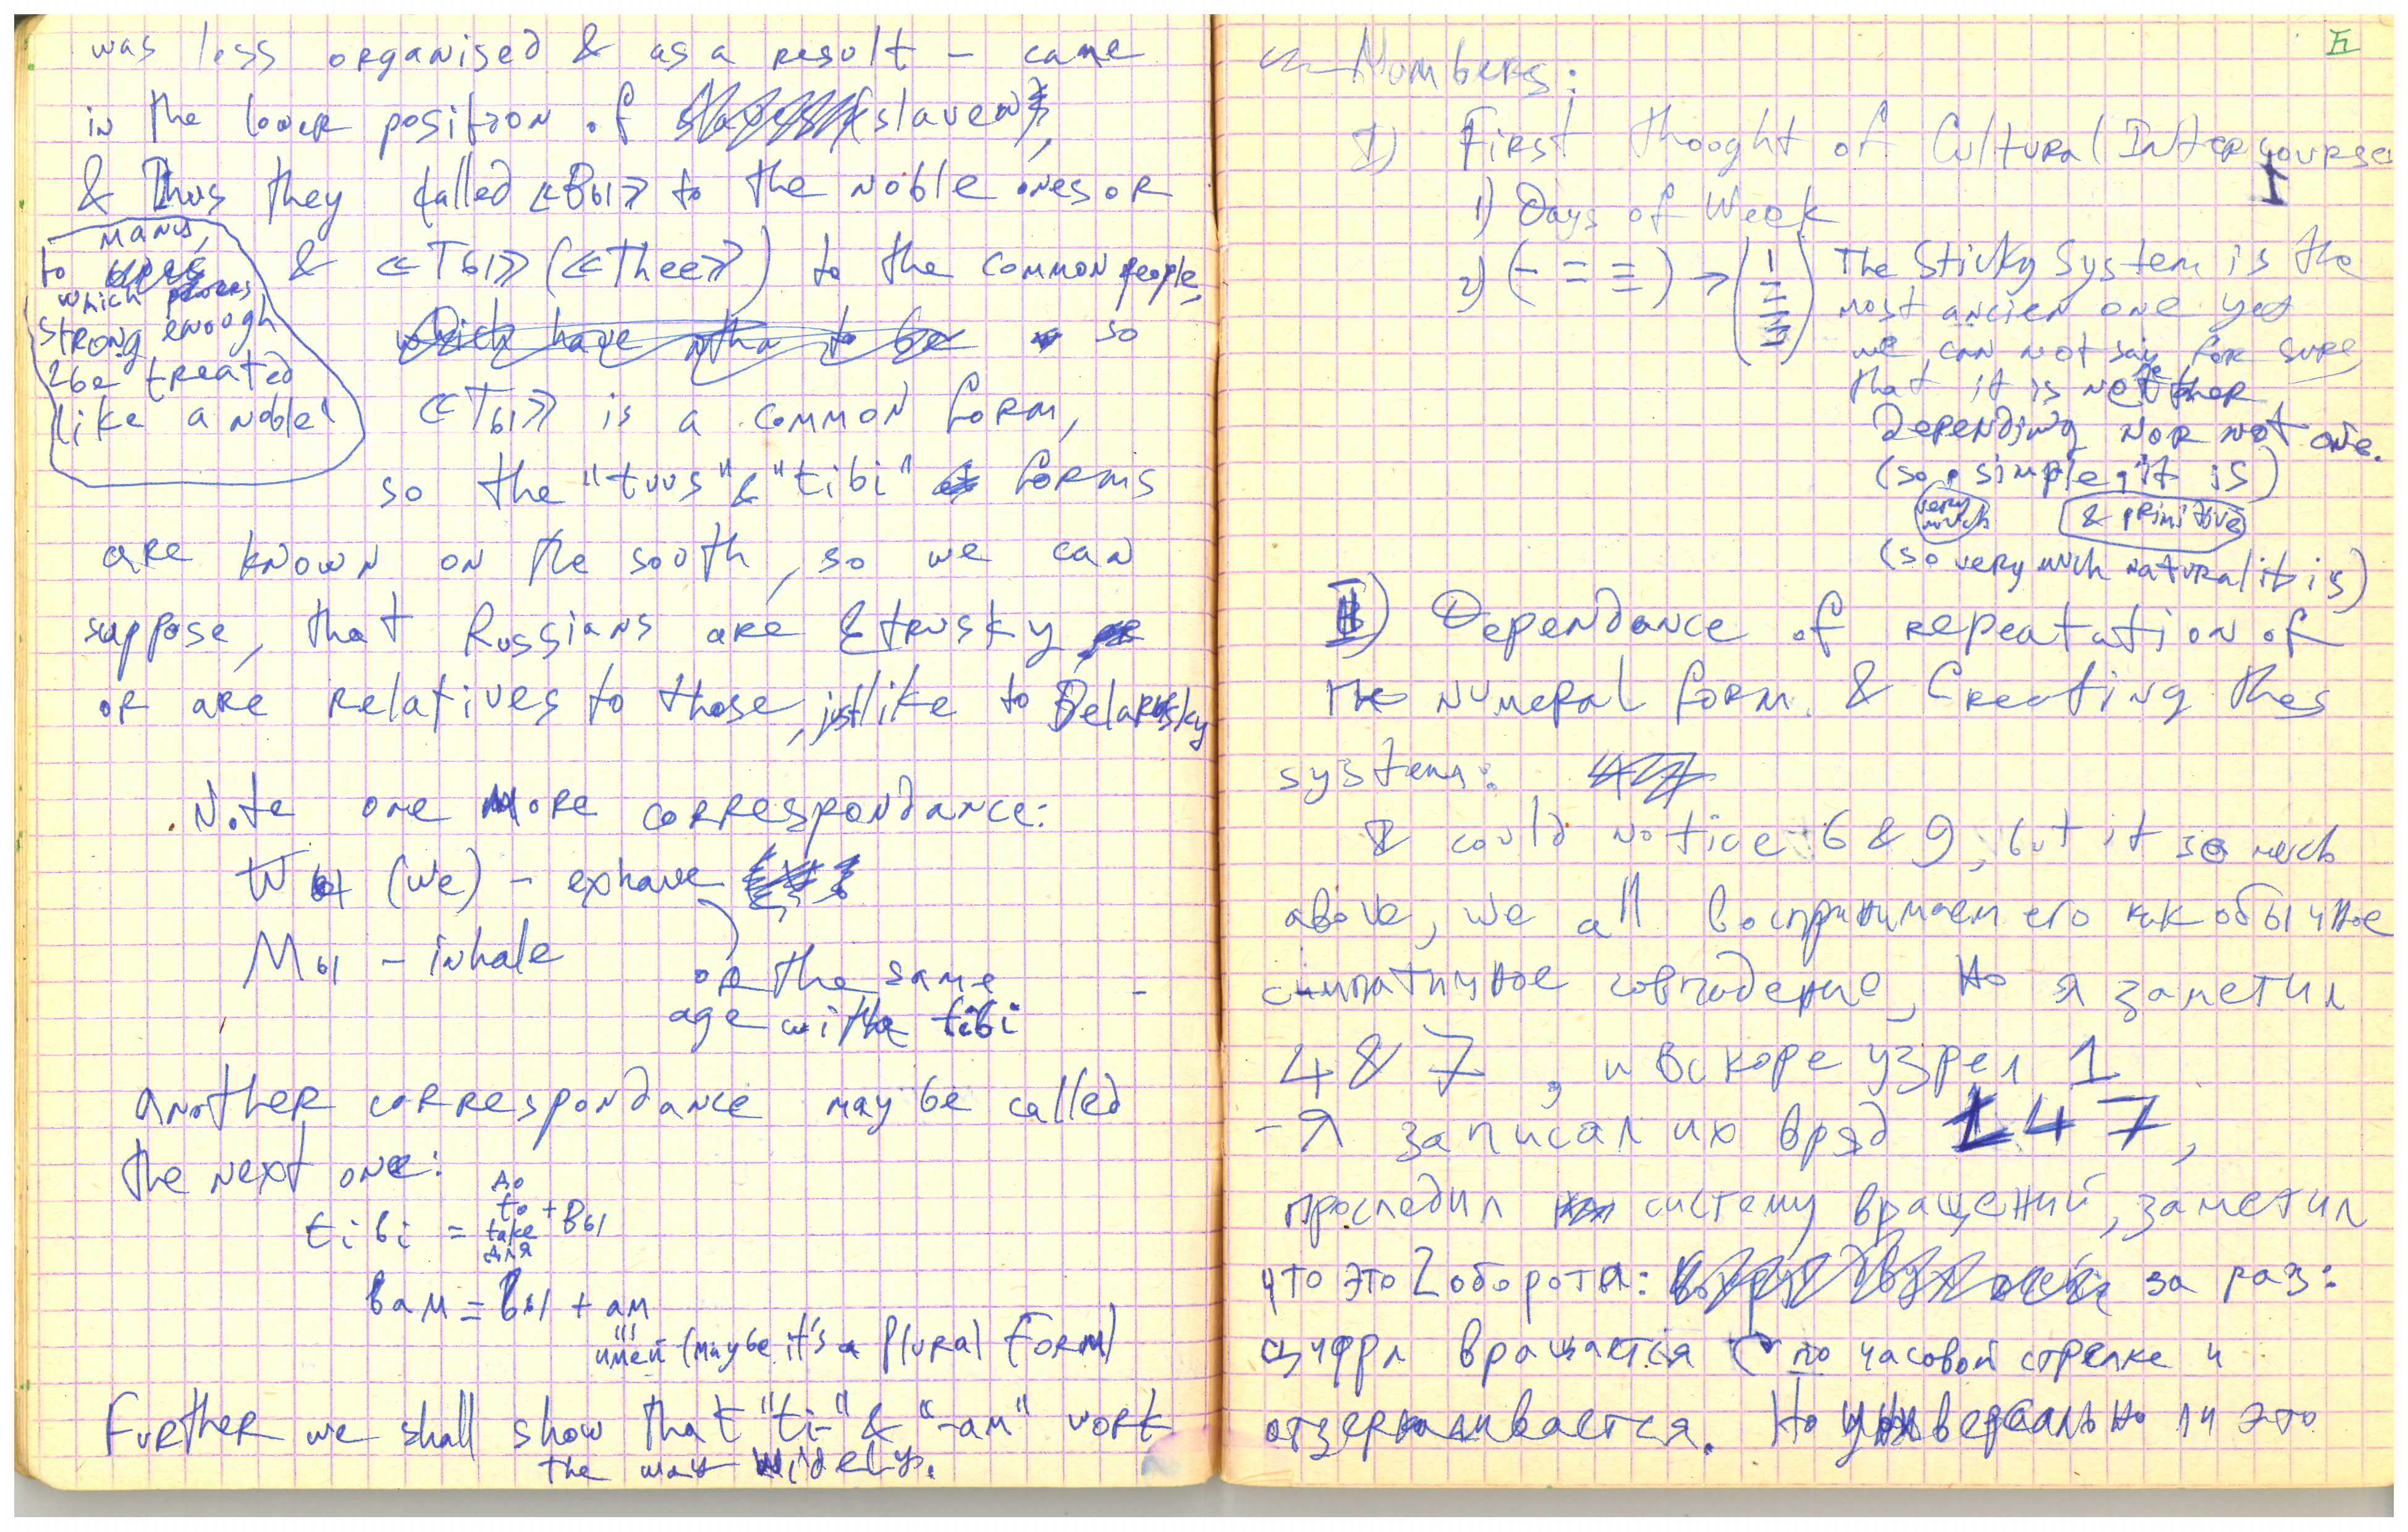 was less organised & as a result - came
in the lower position of (slaven),
& Thus they called «Вы» to the noble ones or
to many,
which
strong enough
2be treated
like a noble
& «Ты» («Thee») to the common people,
which have to be so
«Ты» is a common form,
so the "tuus" & "tibi" forms
are known on the south, so we can
suppose, that Russians are Etrusky
or are relatives to those, just like to Belarusky
Note one more correspondance:
(we) - exhave
Мы - inhale
of the same
age withe tibi
another correspondance may be called
the next one:
до
tibi = to + Вы
take
для
вам = вы + ам
имей (maybe it's a plural form)
Further we shall show that "ti-" & "-am" work
the way widely.
五
Numbers:
I) First thought of Cultural Intercourse
1
1) Days of Week
2) (- = ≡) → (1 2 3)
The Sticky System is the
most ancien one yet
we can not say for sure
that it is neither
Depending nor not one.
(so simple it is)
very much & primitive
(so very much natural it is)
II) Dependance of repeatation of
the numeral form & Creating thes
system:
I could notice 6 & 9, but it so much
above, we all воспринимаем его как обычное
симпатичное совпадение, Но я заметил
4 & 7, и вскоре узрел 1
- Я записал их вряд 1 4 7,
проследил систему вращений, заметил
что это 2 оборота: за раз:
цифра вращается по часовой стрелке и
отзеркаливается. Но универсально ли это